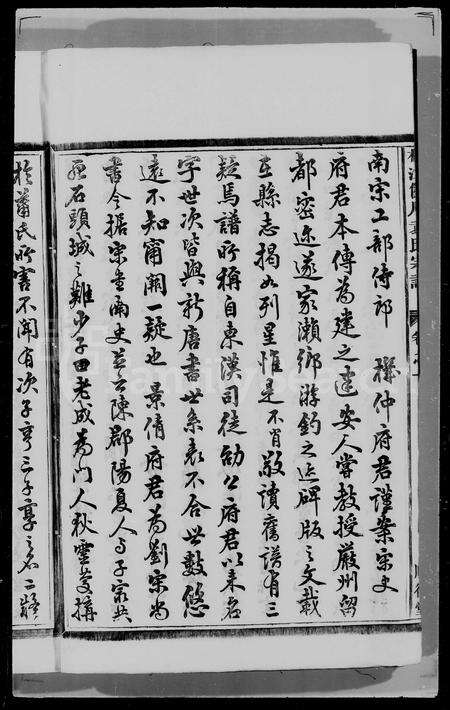 南宋工部侍郎　機仲府君謹案宋史
府君本傳為建之建安人嘗教授嚴州留
都密迩遂家瀨鄉游釣之迹碑版之文載
在縣志揭如列星惟是不肖敬讀舊譜有三
疑焉譜所稱自東漢司徒劭公府君以來名
字世次皆與新唐書世系表不合世數悠
遠不知甯闕一疑也景倩府君為劉宋尚
書令据宋書南史並云陳郡陽夏人與子宗共
石頭城之難少子曰老成為門人狄靈慶搆
於蕭氏所害不聞有次子亨三子享之名二疑